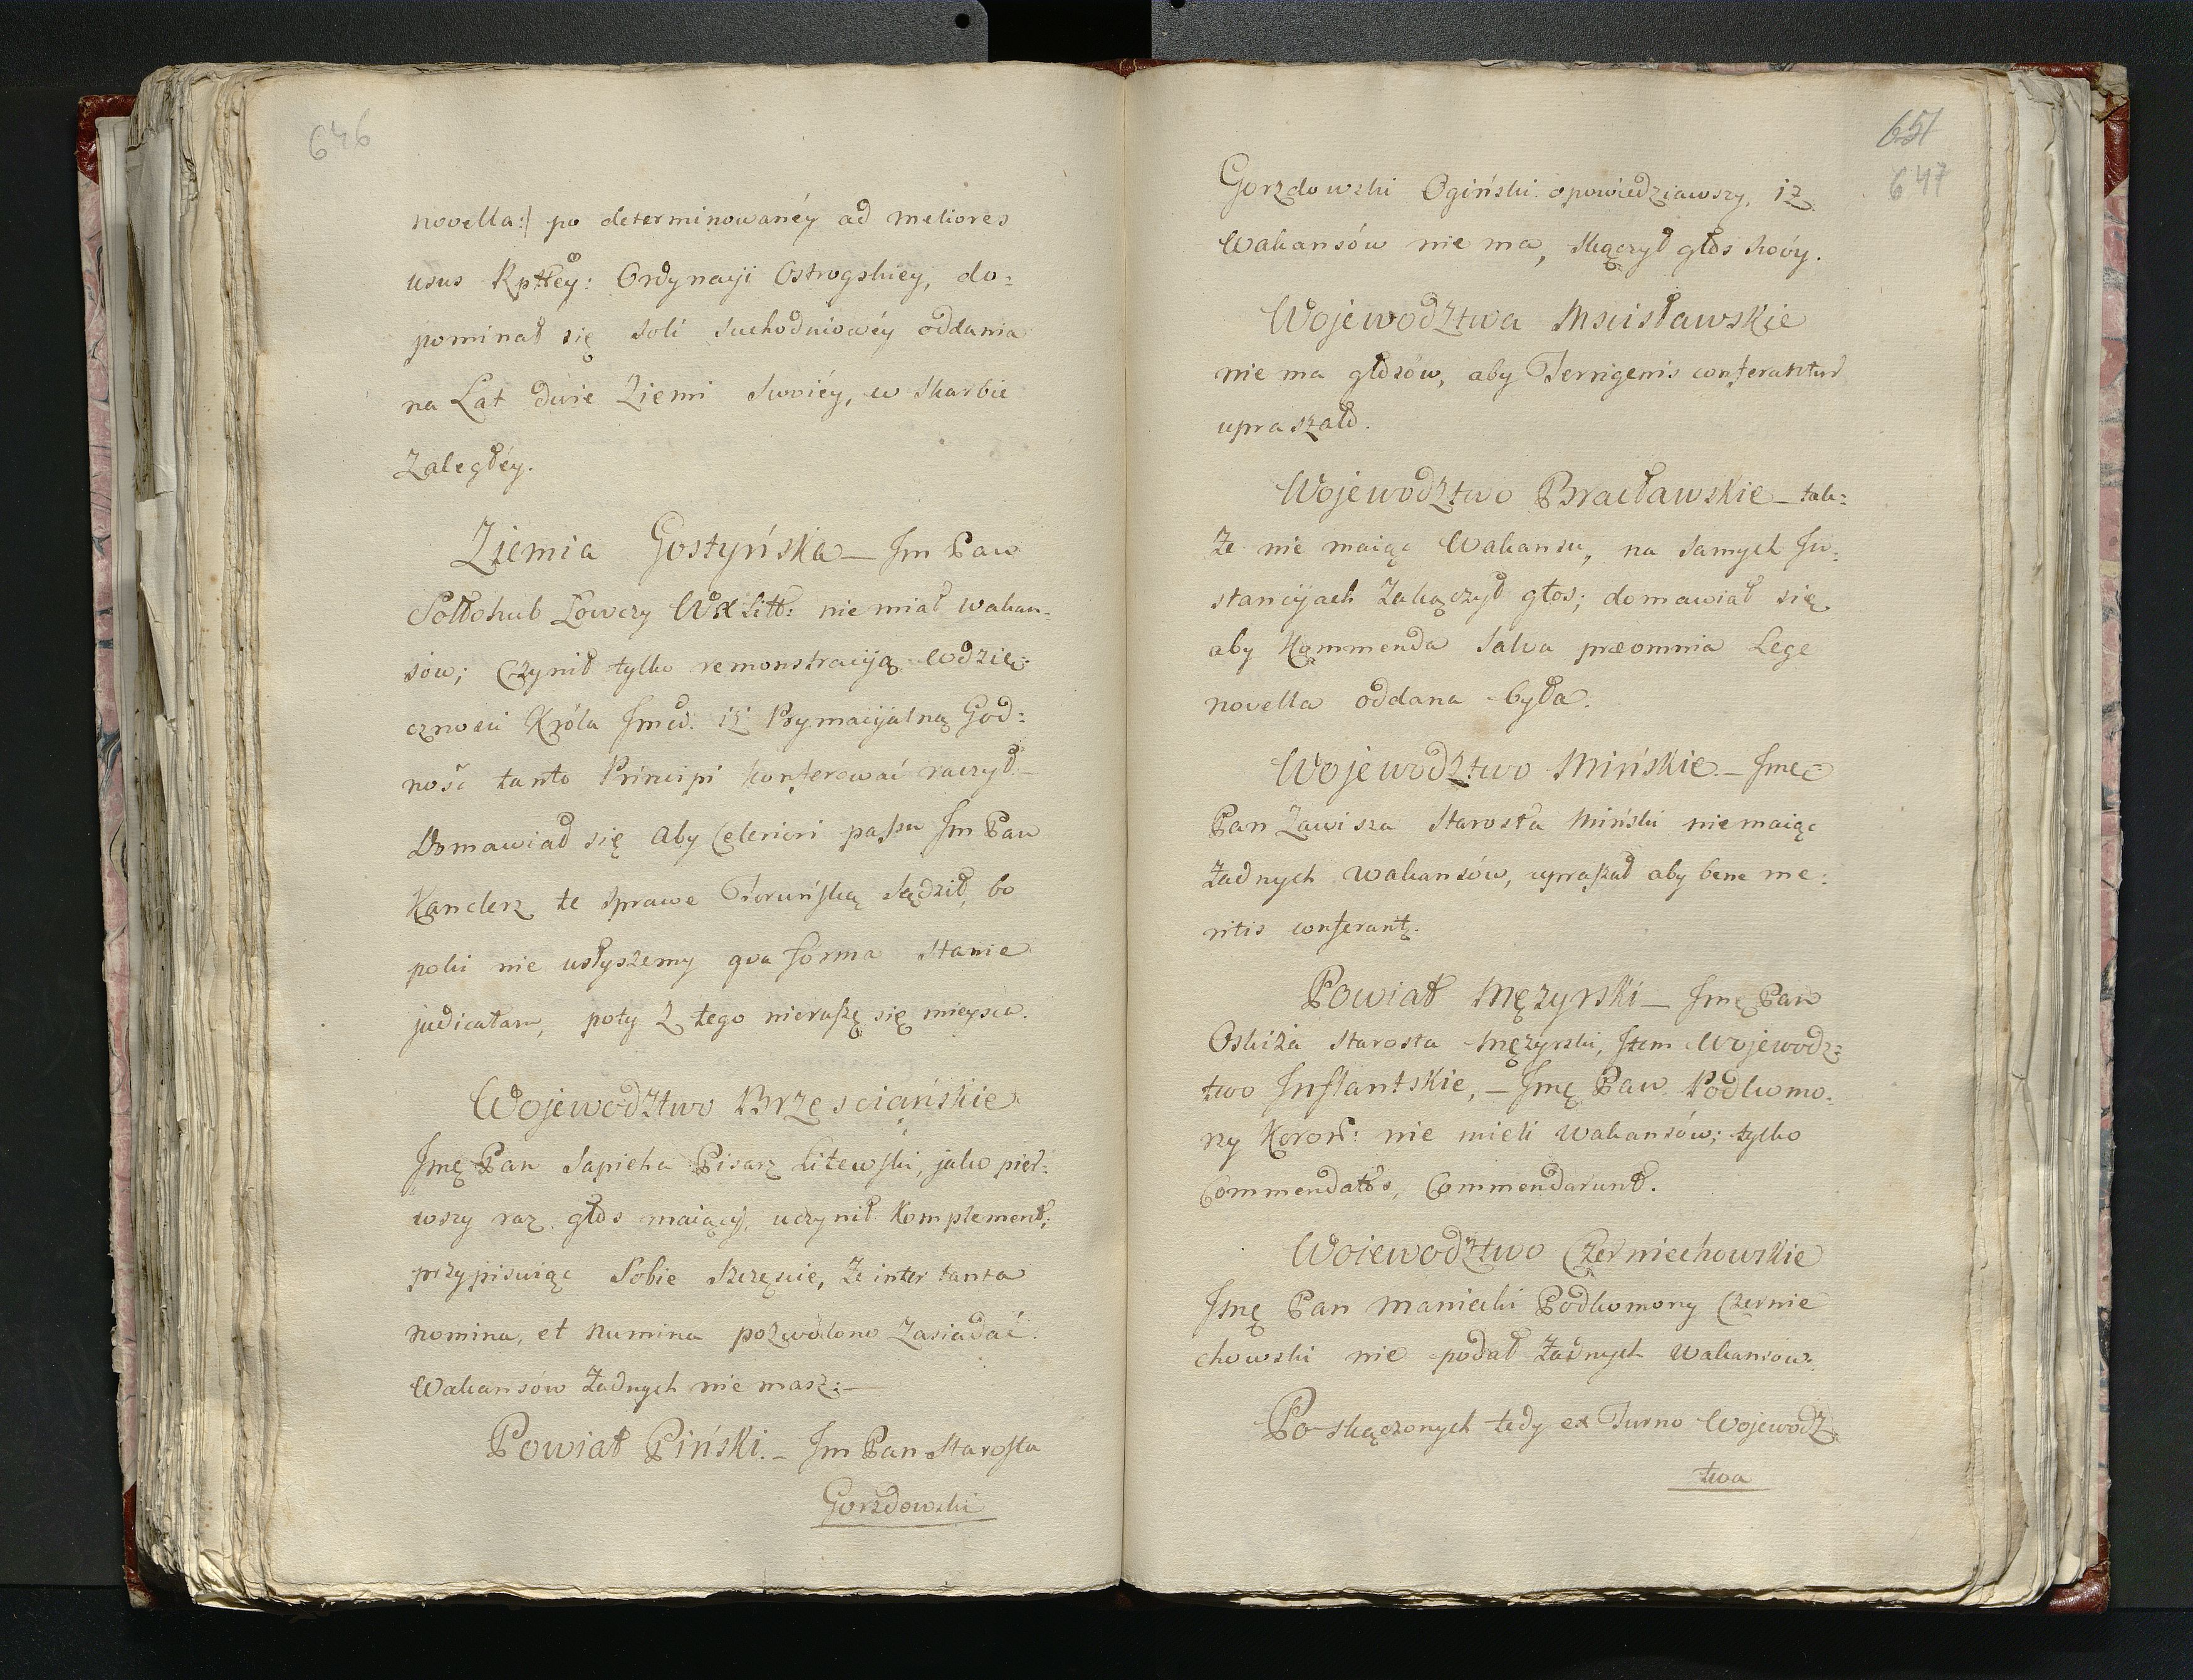 646
novella:/ po determinowanéy ad meliores
usus Rpttey: Ordynacyi Ostrogskiey, do=
pominał się Soli Suchodniowéy oddania
na Lat dwie Ziemi Swoiéy, w Skarbie
Zaległéy.
Ziemia Gostyńska — Jm Pan
Sołłohub Łowczy WX Litt: nie miał wakan=
sów; Czynił tylko remonstracyją wdzię=
czności Króla Jmci. iż Prymacyjalną God=
ność tanto Principi konferować raczył. —
Domawiał się aby Celeriori passu Jm Pan
Kanclerz te sprawe Toruńską Sądził, bo
poki nie usłyszemy qva forma stanie
judicatum, poty z tego nieruszę się mieysca.
Wojewodztwo Brzesciańskie
Jmę Pan Sapieha Pisarz Litewski, jako pier=
wszy raz głos maiący, uczynił Komplement;
przypisuiąc Sobie Szczęscie, Ze inter tanta
nomina, et numina pozwolono Zasiadać.
Wakansów Żadnych nie masz: —
Powiat Piński. — Jm Pan Starosta
Gorzdowski
651
647
Gorzdowski Ogiński opowiedziawszy, iż
Wakansów nie ma, skączył głos swóy.
Wojewodztwa Mscisławskie
nie ma głosów, aby Terrigenis conferantur
upraszało.
Wojewodztwo Bracławskie — tak=
że nie maiąc Wakansu, na samych In=
stancyjach Zakączył głos; domawiał się
aby Kommenda Salva præomnia Lege
novella oddana była.
Wojewodztwo Mińskie. — Jmę
Pan Zawisza Starosta Miński niemaiąc
żadnych wakansów, upraszał aby bene me=
ritis conferant.
Powiat Męzyrski — Jmę Pan
Oskiża Starosta Męzyrski, Item Wojewodz=
two Inflantskie, — Jmę Pan Podkomo=
rzy Koroń: nie mieli wakansów; tylko
Commendatos, Commendarunt.
Woiewodztwo Czerniechowskie
Jmę Pan Maniecki Podkomorzy Czernie
chowski nie podał Żadnych wakansow.
Po skączonych tedy ex Turno Wojewodz
twa